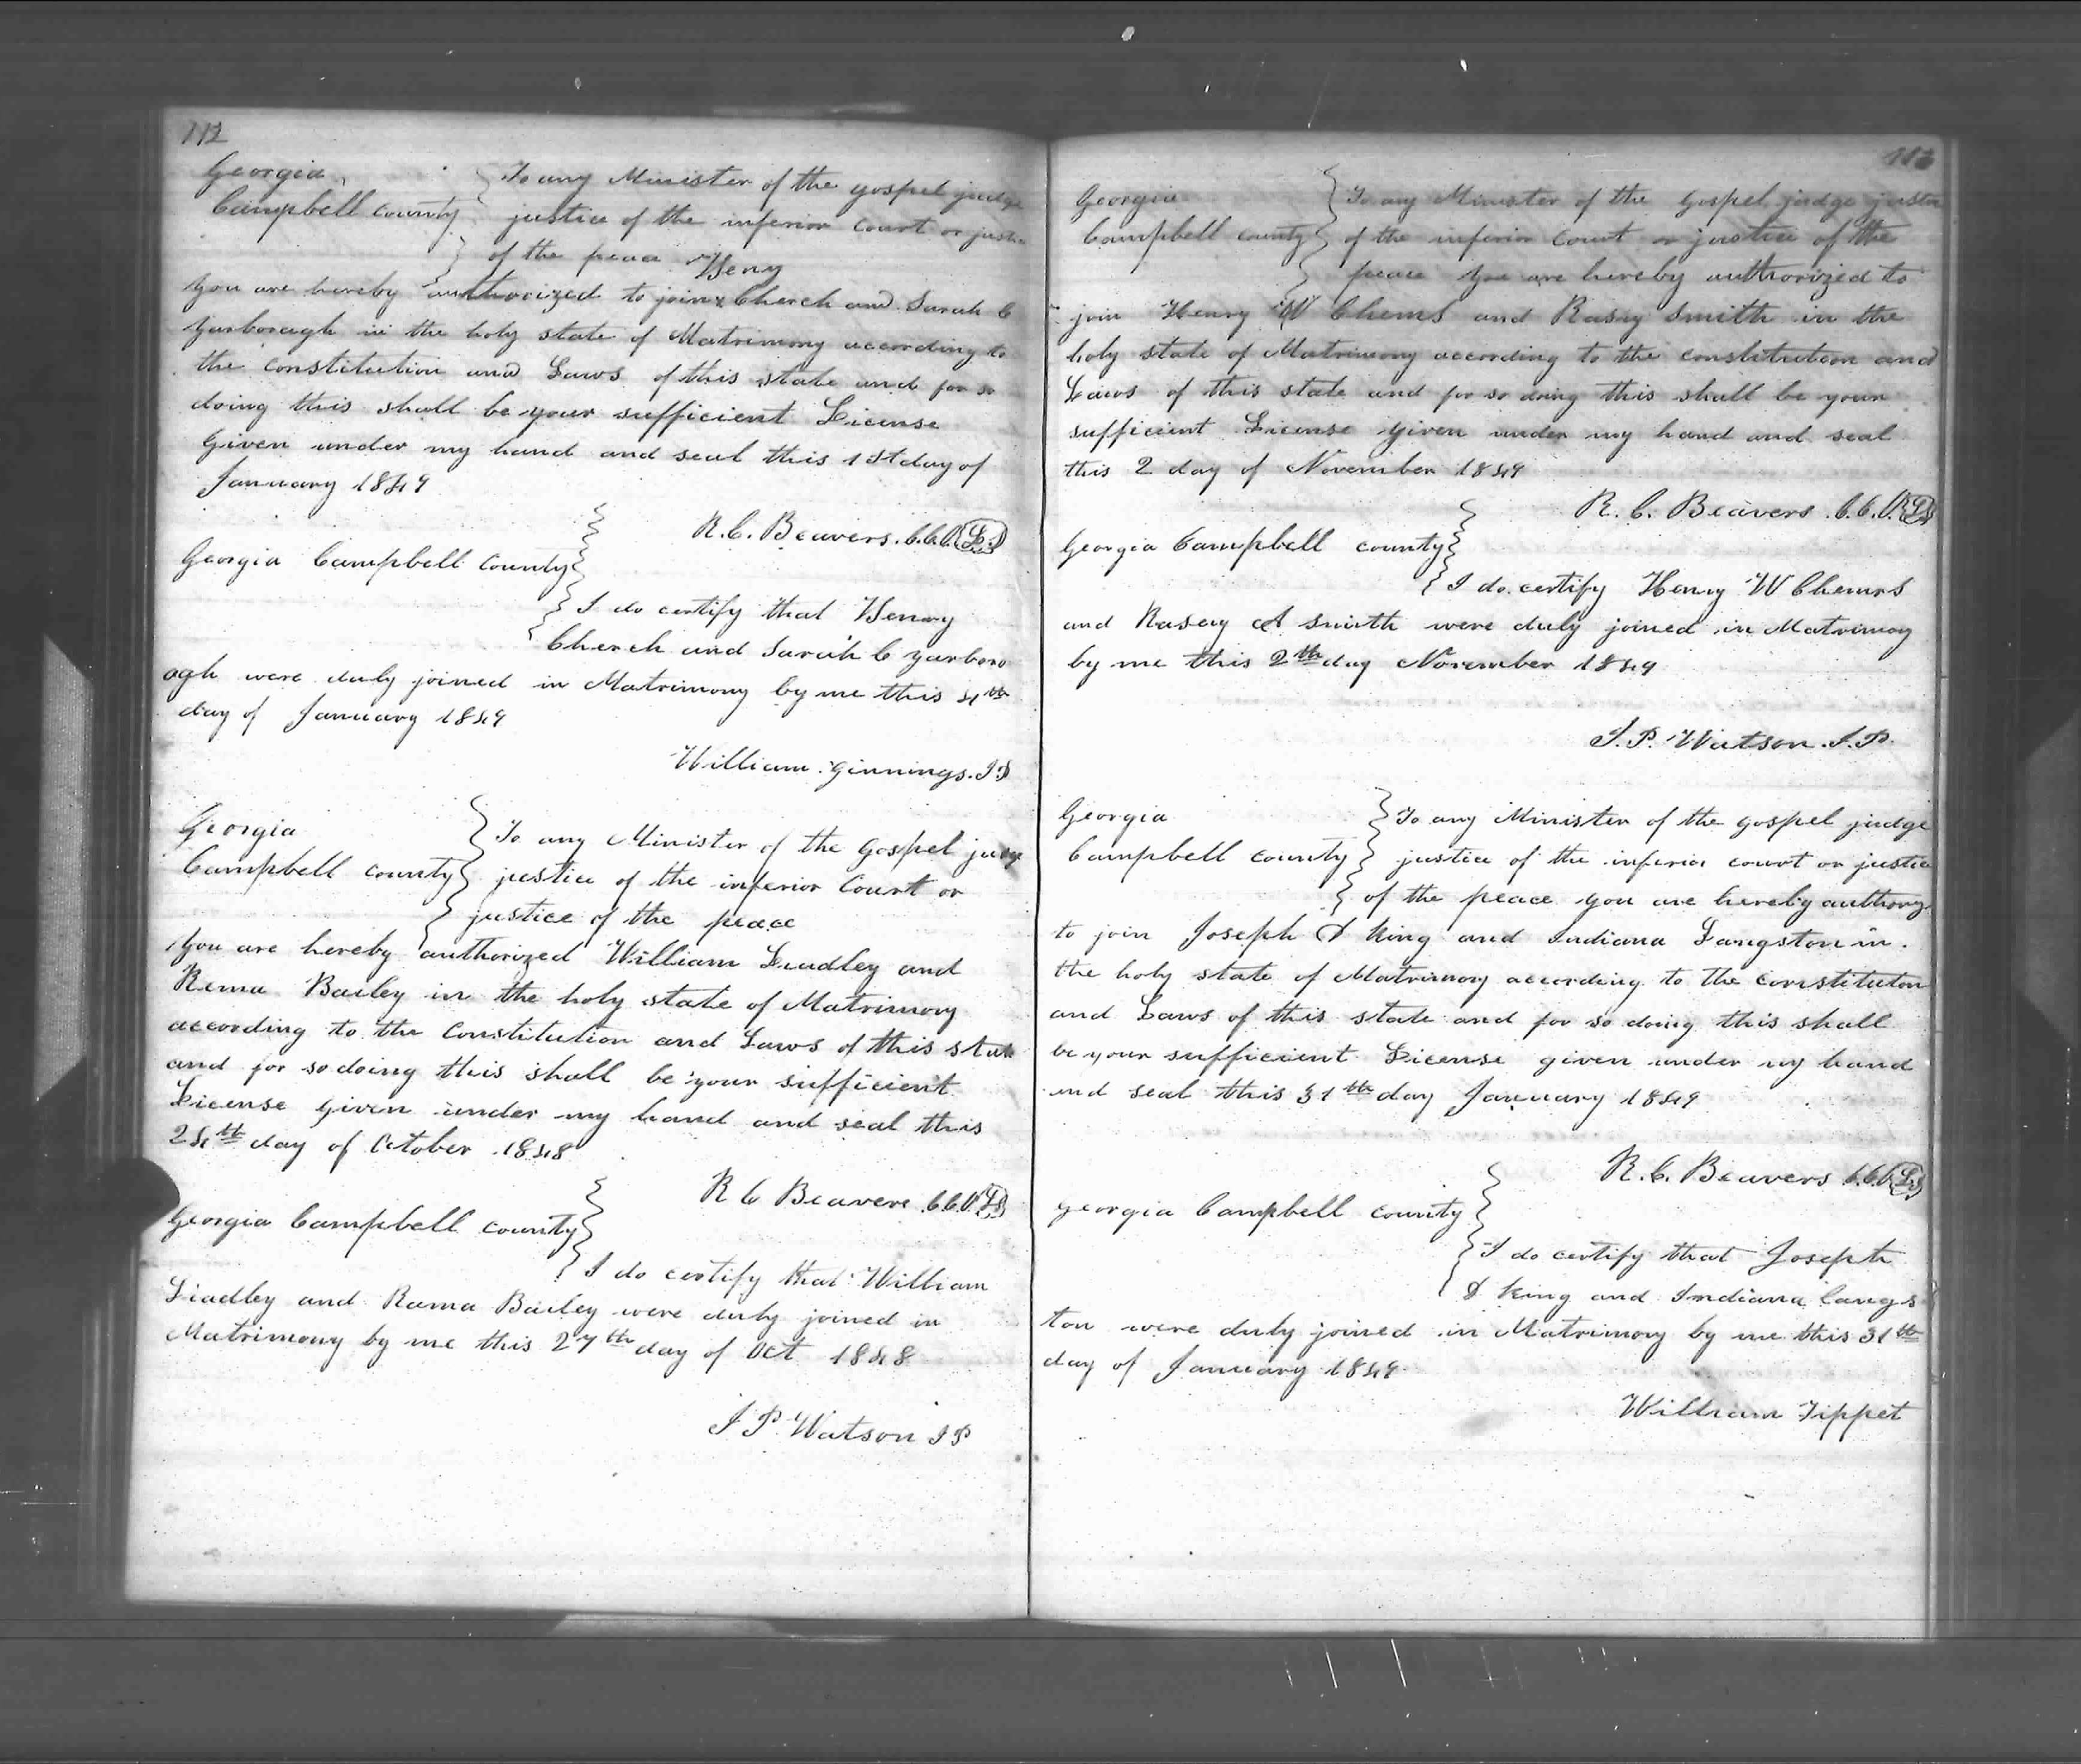 112
Georgia
Campbell county
To any Minister of the gospel judge
justice of the inferior Court or justice
of the peace
Heny
you are hereby authorized to join x Cherch and Sarah C
yarborough in the holy state of Matrimony according to
the constitution and Laws of this state and for so
doing this shall be your sufficient License
given under my hand and seal this 1st day of
January 1849
R. C. Beavers. C.C.O. L.S
Georgia Campbell county
I do certify that Henry
Cherch and Sarah C yarboro
ogh were duly joined in Matrimony by me this 4th
day of January 1849
William ginnings. J P
Georgia
Campbell county
To any Minister of the Gospel judge
justice of the inferior Court or
justice of the peace
you are hereby authorized William Liadley and
Rema Bailey in the holy state of Matrimony
according to the Constitution and Laws of this state
and for so doing this shall be your sufficient
License given under my hand and seal this
24th day of October 1848
R C Beavers C.C.O. L.S
Georgia Campbell county
I do certify that William
Liadley and Rama Bailey were duly joined in
Matrimony by me this 27th day of Oct 1848
J P Watson J P
113
Georgia
Campbell county
To any Minister of the Gospel judge justice
of the inferior Court or justice of the
peace you are hereby authorized to
join Henry W Chems and Rasay Smith in the
holy state of Matrimony according to the constitution and
Laws of this state and for so doing this shall be your
sufficient License given under my hand and seal
this 2 day of November 1849
R. C. Beavers. C.C.O. L.S
Georgia Campbell county
I do certify Henry W Chemrs
and Rasay A smith were duly joined in Matrimoy
by me this 2th day November 1849
J. P. Watson. J. P.
Georgia
Campbell county
To any Minister of the gospel judge
justice of the inferior court or justice
of the peace you are hereby authorz
to join Joseph & King and Indiana Langston in.
the holy state of Matrimony according to the constituton
and Laws of this state and for so doing this shall
be your sufficient License given under my hand
and seal this 31th day January 1849
R. C. Beavers C.C.O. L.S
georgia Campbell county
I do certify that Joseph
& King and Indiana Langs
ton were duly joined in Matrimony by me this 31th
day of January 1849
William Tippet